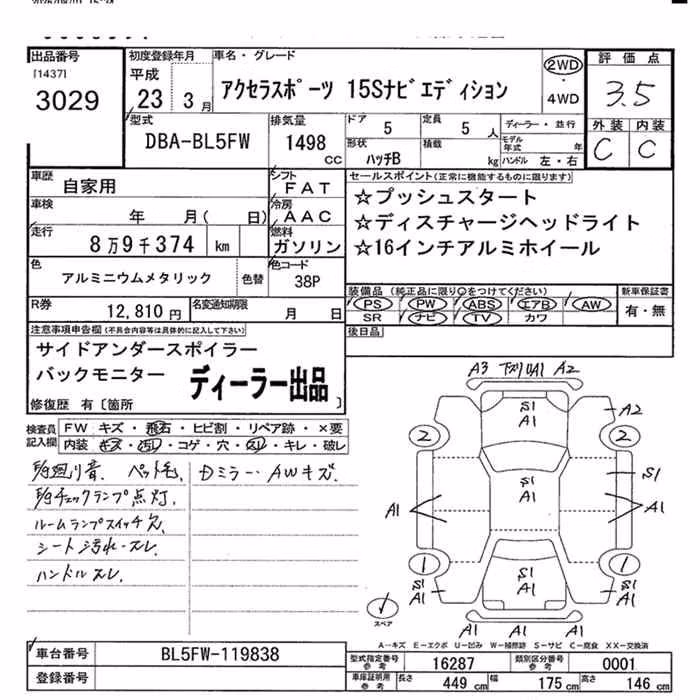 出品番号
[1437]
3029
初度登録年月
平成
23 3月
車名・グレード
アクセラスポーツ 15Sナビエディション
2WD
・
4WD
評価点
3.5
外装 内装
C C
型式
DBA-BL5FW
排気量
1498
CC
ドア
5
定員
5 人
形状
ハッチB
積載
kg
ディーラー・並行
モデル年式 年
ハンドル 左・右
車歴
自家用
シフト
FAT
車検
年 月( 日)
冷房
AAC
走行
8万9千374 km
燃料
ガソリン
色
アルミニウムメタリック
色替
色コード
38P
R券
12,810円
名変通知期限
月 日
セールスポイント(正常に機能するものに限ります)
☆プッシュスタート
☆ディスチャージヘッドライト
☆16インチアルミホイール
装備品 (純正品に限り○をつけてください)
PS PW ABS エアB AW
SR ナビ TV カワ
新車保証書
有・無
後日品
注意事項申告欄(不具合内容等は具体的に記入して下さい)
サイドアンダースポイラー
バックモニター
ディーラー出品
修復歴 有〔箇所 〕
検査員記入欄
FW キズ・飛石・ヒビ割・リペア跡・×要
内装 キズ・汚れ・コゲ・穴・スレ・キレ・破レ
ペット毛、
Dミラー・AWキズ.
チェックランプ点灯,
ルームランプスイッチ欠,
シート汚れ・スレ,
ハンドルスレ,
A3 下スリ A1 A2
S1
A1
A2
2 2
S1
S1
A1
A1
A1
1 1
S1
A1
S1
A1
S1
A1
A1 A1 A1
スペア
A-キズ E-エクボ U-凹み W-補修跡 S-サビ C-腐食 XX-交換済
車台番号
BL5FW-119838
登録番号
型式指定番号
参考
16287
類別区分番号
参考
0001
車庫証明用
参考
長さ 449 cm
幅 175 cm
高さ 146 cm